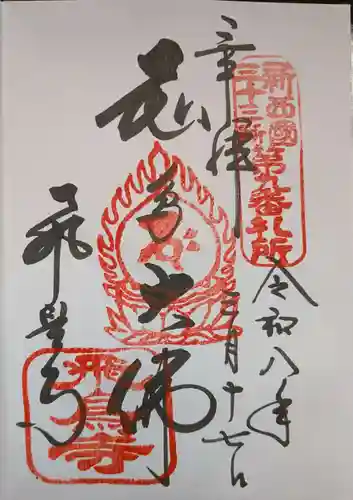 奉拝
令和八年
三月十七日
飛鳥大佛
飛鳥寺
新西國
三十三所
第九番札所
飛鳥寺